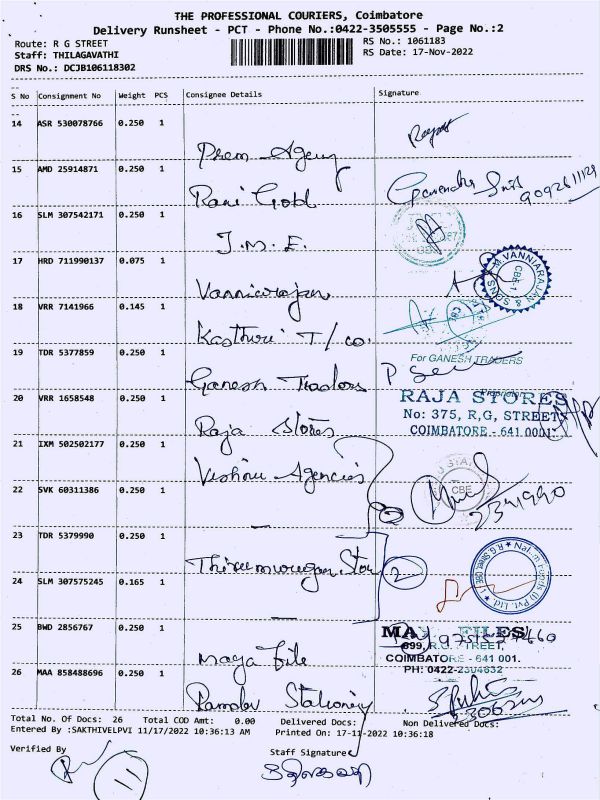 THE PROFESSIONAL COURIERS, Coimbatore
Delivery Runsheet - PCT - Phone No.:0422-3505555 - Page No.:2
Route: R G STREET
RS No.: 1061183
Staff: THILAGAVATHI
RS Date: 17-Nov-2022
DRS No.: DCJB106118302
S No Consignment No Weight PCS Consignee Details Signature
14 ASR 530078766 0.250 1
Prem Agency
15 AMD 25914871 0.250 1
Rani Gold
9092611129
16 SLM 307542171 0.250 1
J.M.E.
17 HRD 711990137 0.075 1
Vanniarajan
M.VANNIARAJAN & SONS CBE-1
18 VRR 7141966 0.145 1
Kasthuri T/co.
CBE
19 TDR 5377859 0.250 1
For GANESH TRADERS
Ganesh Traders
Proprietor
20 VRR 1658548 0.250 1
RAJA STORES
No: 375, R,G, STREET
COIMBATORE - 641 0001.
Raja Stores
21 IXM 502502177 0.250 1
Vishnu Agencies
CBE
22 SVK 60311386 0.250 1
2
2341990
23 TDR 5379990 0.250 1
Thirumurugan Store
2
24 SLM 307575245 0.165 1
25 BWD 2856767 0.250 1
MAYA FILES
699, R.G. STREET,
COIMBATORE - 641 001.
PH: 0422-2304632
Maya File
26 MAA 858488696 0.250 1
Ramdev Stationery
Total No. Of Docs: 26 Total COD Amt: 0.00 Delivered Docs: Non Delivered Docs:
Entered By :SAKTHIVELPVI 11/17/2022 10:36:13 AM Printed On: 17-11-2022 10:36:18
Verified By
Staff Signature
11